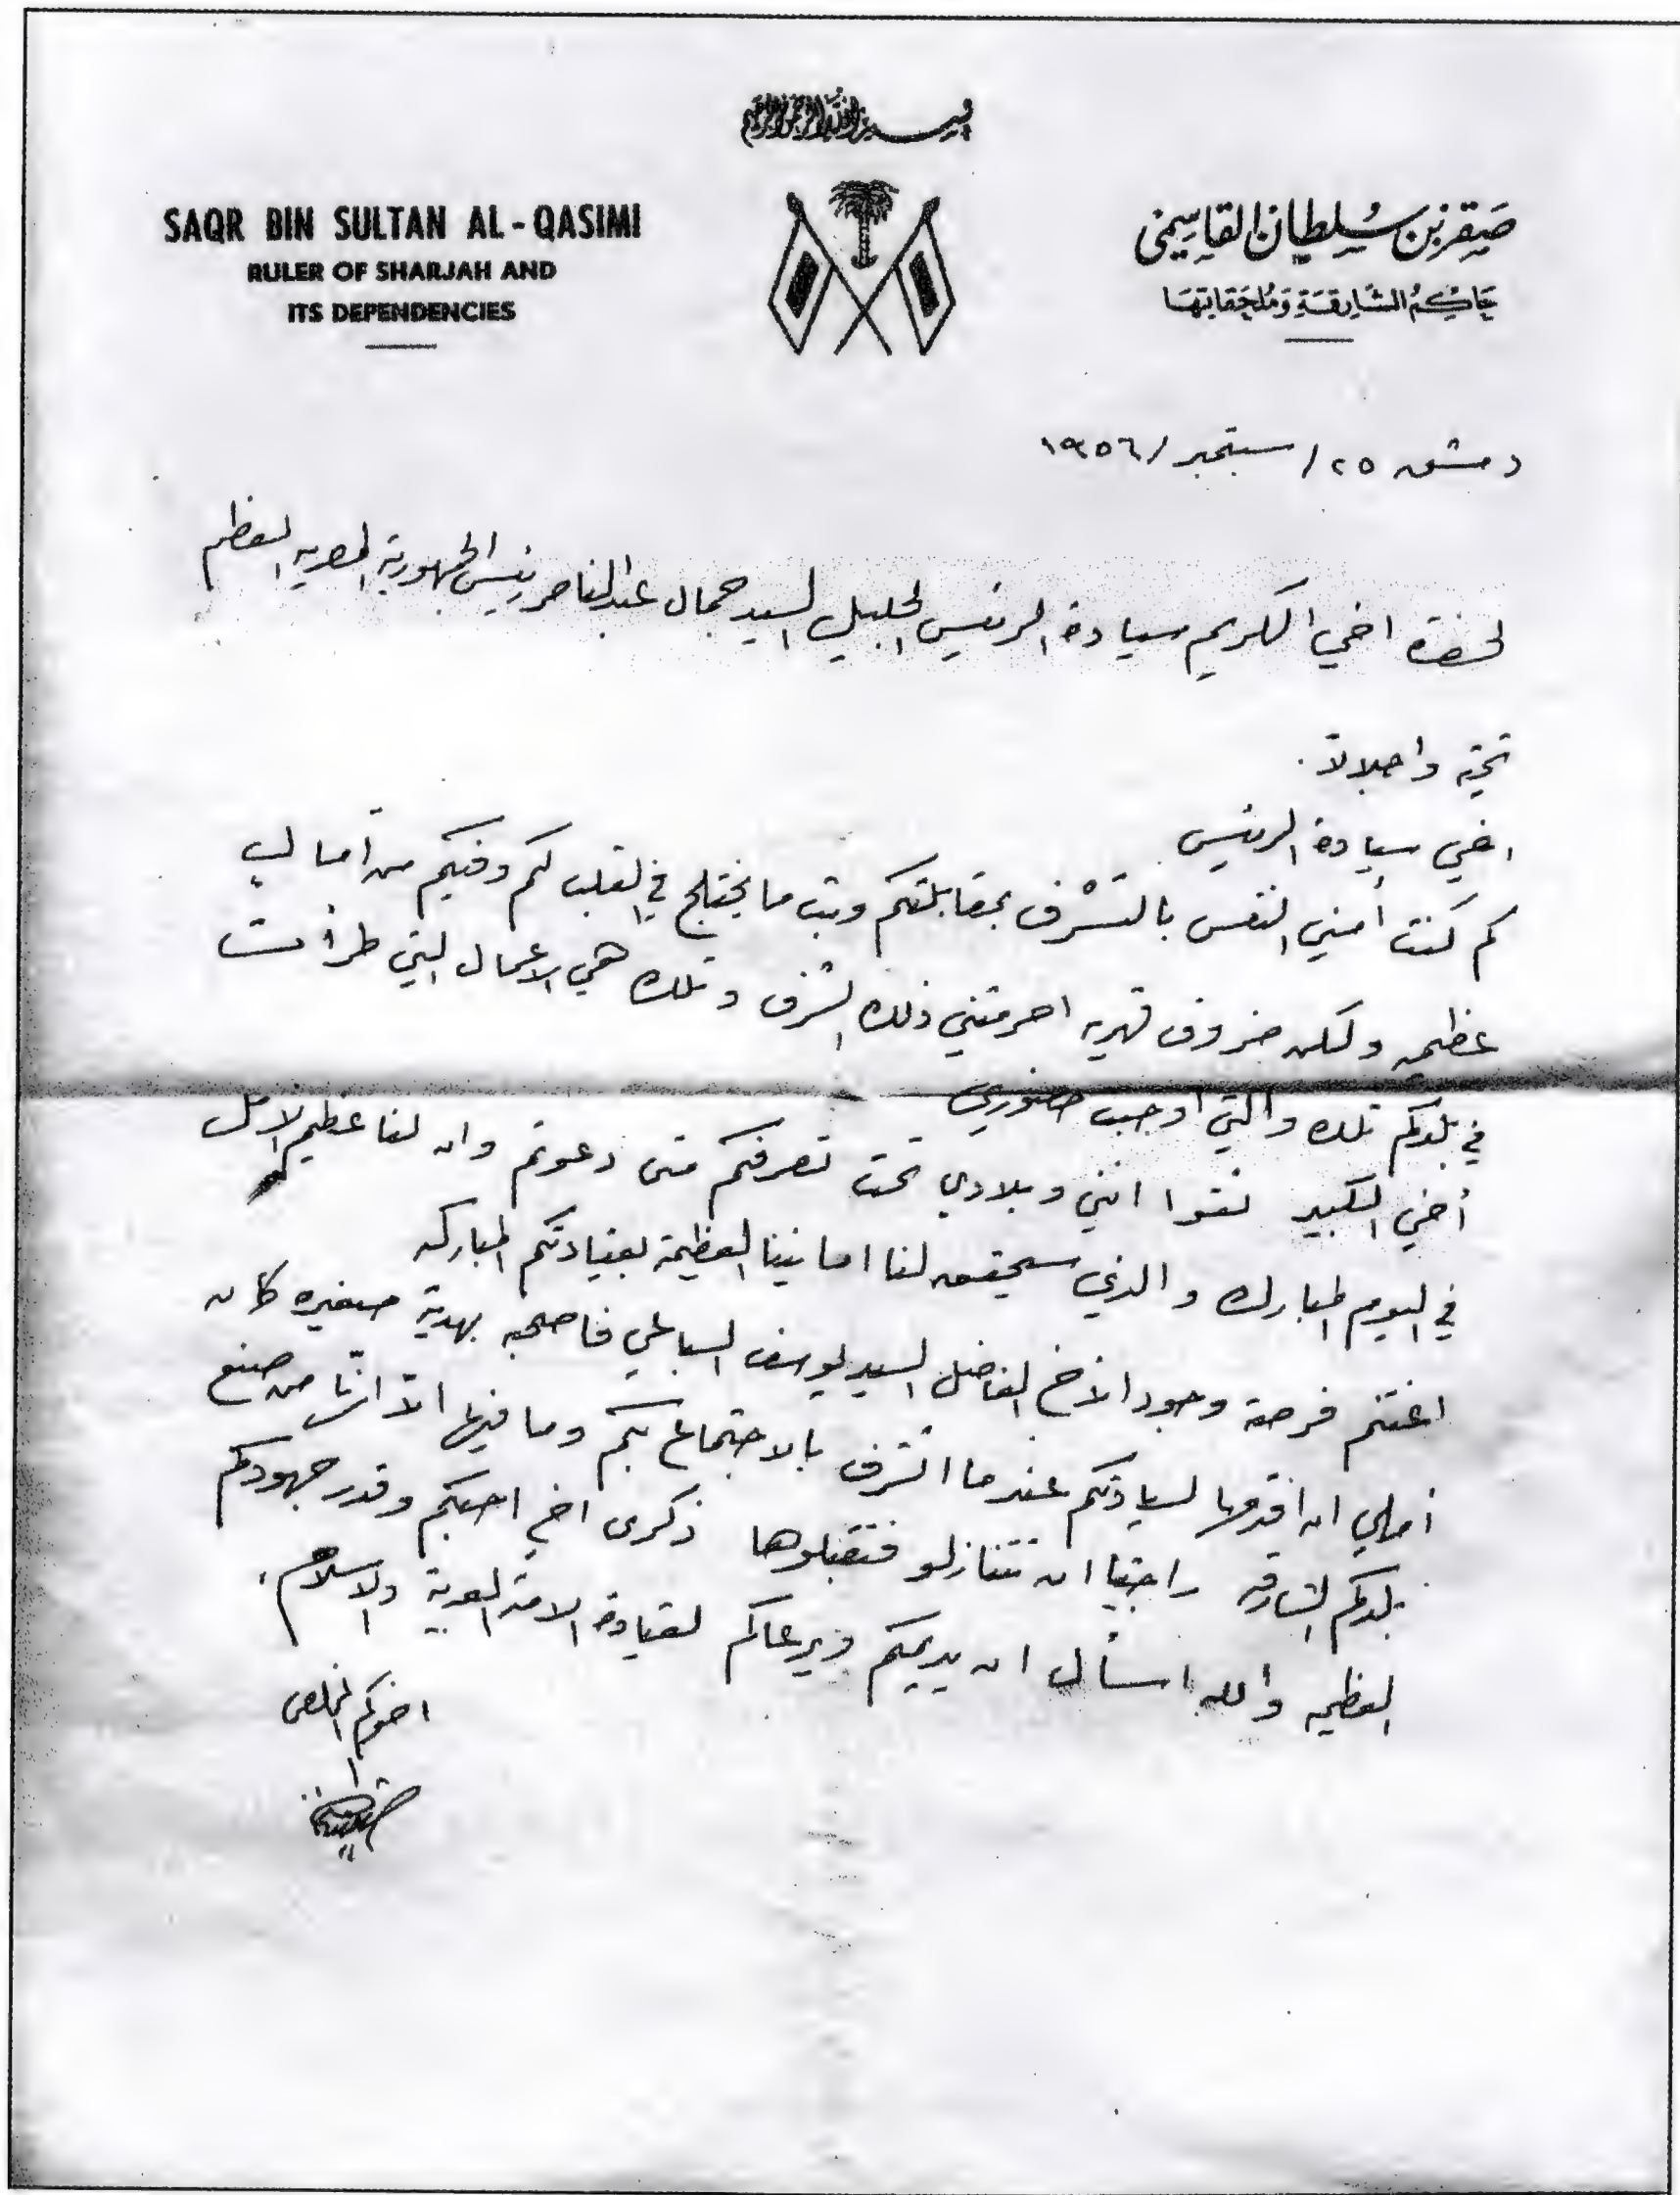 بسم الله الرحمن الرحيم
SAQR BIN SULTAN AL-QASIMI
RULER OF SHARJAH AND
ITS DEPENDENCIES
صقر بن سلطان القاسمي
حاكم الشارقة وملحقاتها
دمشق ٢٥/ سبتمبر/ ١٩٥٦
لحضرة اخي الكريم سيادة الرئيس الجليل السيد جمال عبدالناصر رئيس الجمهورية المصريه المعظم
تحية واجلالا.
اخي سيادة الرئيس
كم كنت أمني النفس بالتشرف بمقابلتكم وبث ما يختلج في القلب لكم وفيكم من آمال
عظيمه ولكن ضروف قهريه احرمتني ذلك الشرف وتلك هي الاعمال التي طرأت
في بلدكم تلك والتي اوجبت حضوري
أخي الكبير ثقوا انني وبلادي تحت تصرفكم متى دعوتم وان لنا عظيم الامل
في اليوم المبارك والذي سيحقق لنا امانينا العظيمة بقيادتكم المباركه
اغتنم فرصة وجود الاخ الفاضل السيد يوسف السباعي فاصحبه بهدية صغيره كان
أملي ان اقدمها لسيادتكم عندما اتشرف بالاجتماع بكم وما فيها الا انها من صنع
بلدكم الشارقه راجيا ان تتنازلو فتقبلوها ذكرى اخ احبكم وقدر جهودكم
العظيمه والله اسأل ان يديمكم ويرعاكم لقيادة الامة العربية والاسلام،
اخوكم المخلص